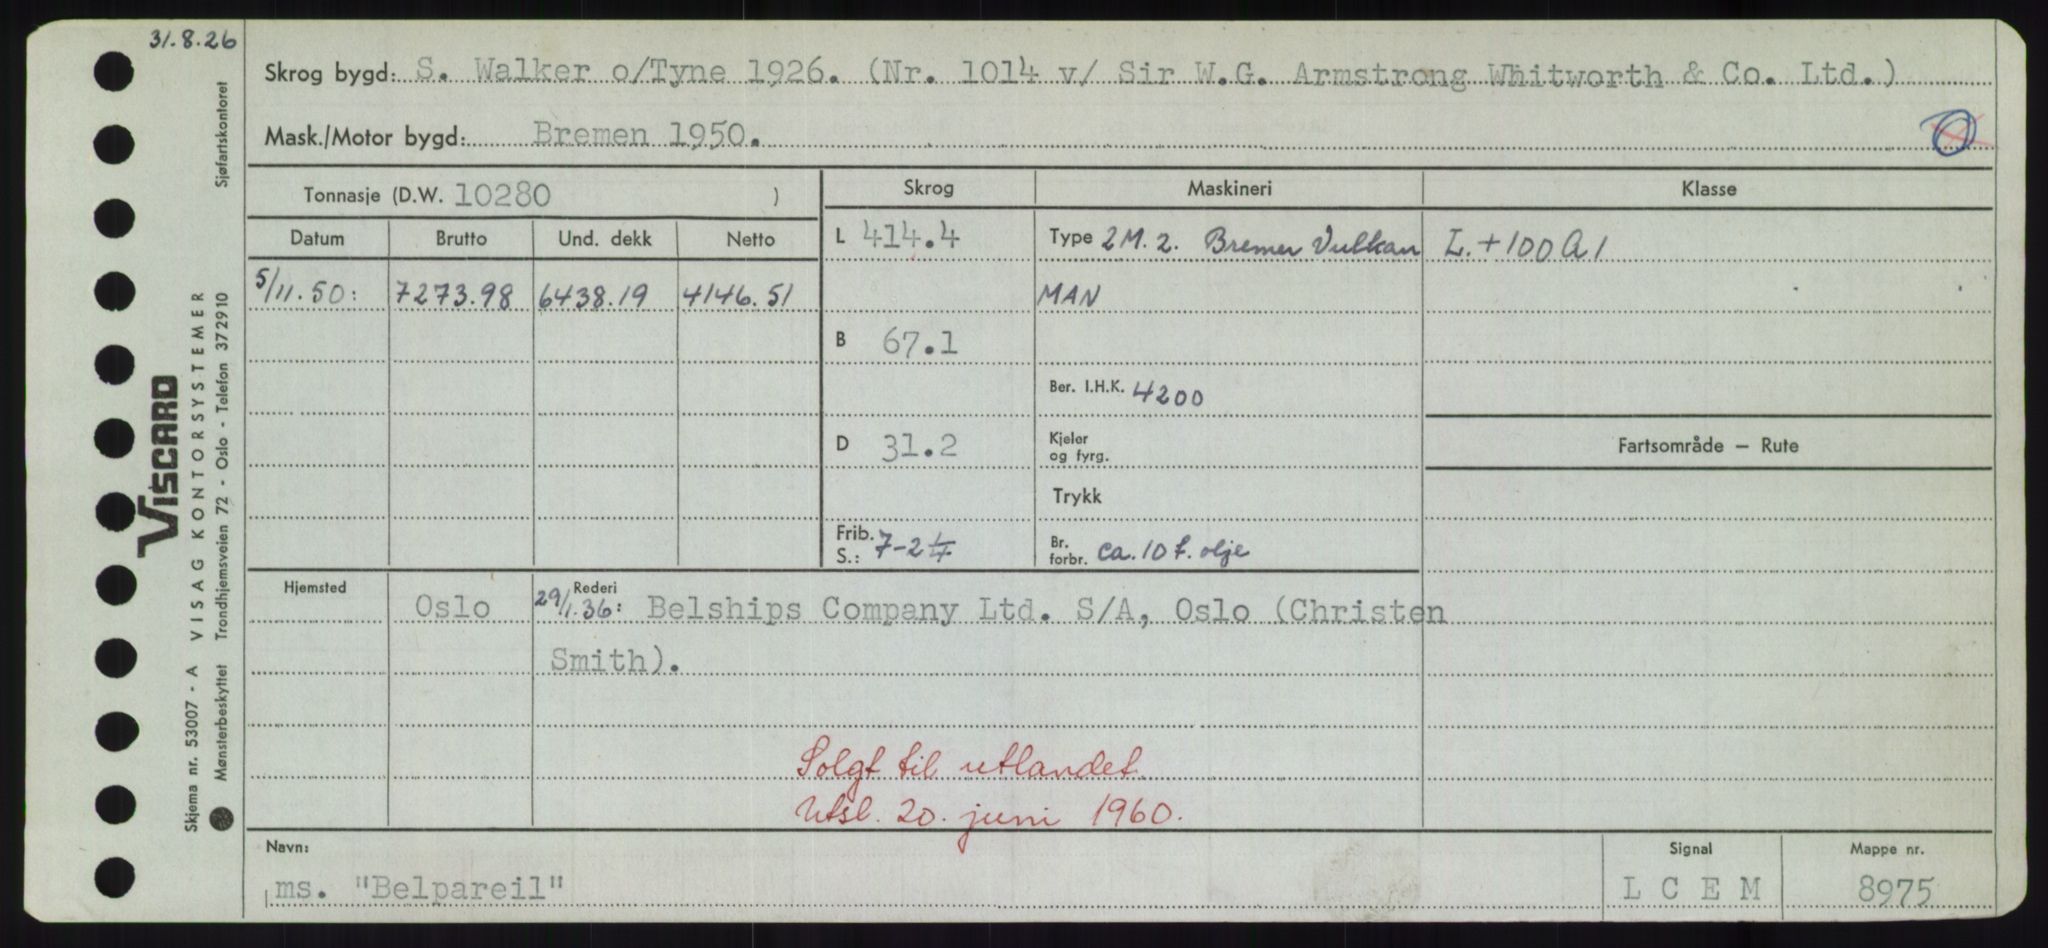 31.8.26
Skrog bygd: S. Walker o/Tyne 1926. (Nr. 1014 v/ Sir W.G. Armstrong Whitworth & Co. Ltd.)
Mask./Motor bygd: Bremen 1950.
O
Tonnasje (D.W. 10280 )
Skrog
Maskineri
Klasse
Datum
Brutto
Und. dekk
Netto
L 414.4
Type 2 M. 2. Bremer Vulkan
L. + 100 A 1
5/11.50:
7273.98
6438.19
4146.51
MAN
B 67.1
Ber. I.H.K. 4200
D 31.2
Kjeler
og fyrg.
Fartsområde — Rute
Trykk
Frib.
S.: 7-2 1/4
Br.
forbr. ca. 10 t. olje
Hjemsted
Oslo
Rederi
29/1.36: Belships Company Ltd. S/A, Oslo (Christen
Smith).
Solgt til utlandet.
Utsl. 20. juni 1960.
Navn:
ms. "Belpareil"
Signal
L C E M
Mappe nr.
8975
Skjema nr. 53007 - A VISAG KONTORSYSTEMER
Mønsterbeskyttet Trondhjemsveien 72 - Oslo - Telefon 372910 Sjøfartskontoret
VISCARD